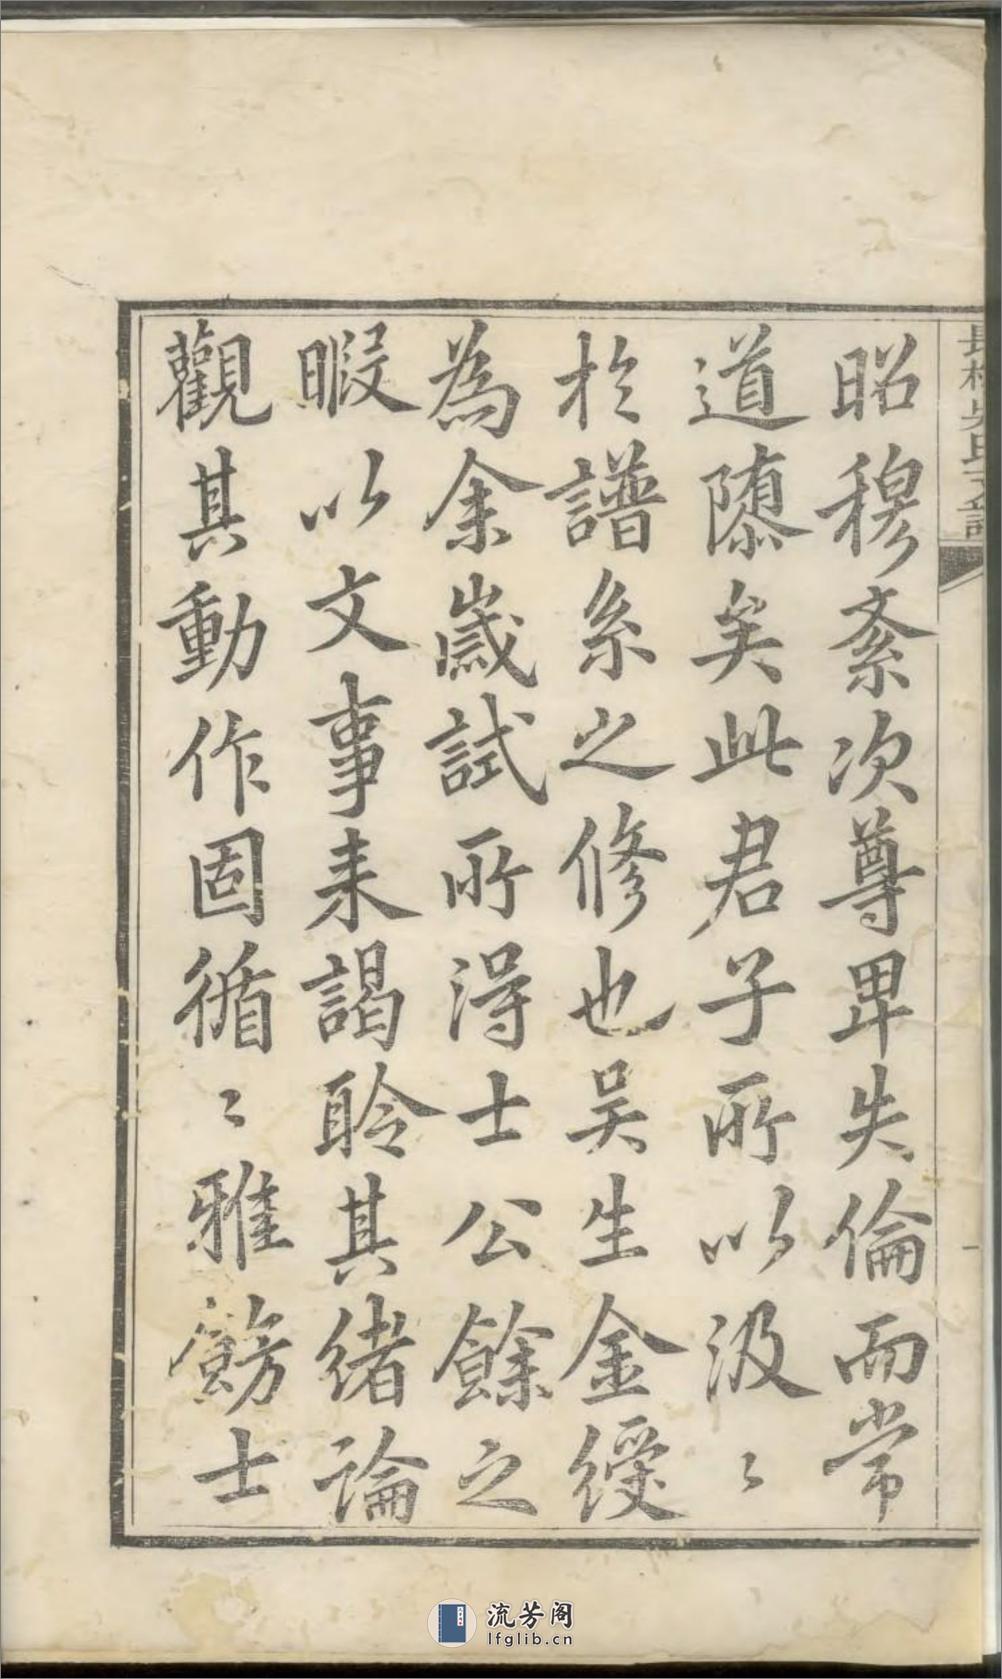 吳氏
昭穆紊次尊卑失倫而常
道隳矣此君子所以汲〻
於譜系之修也吳生金綬
為余歲試所得士公餘之
暇以文事来謁聆其緒論
觀其動作固循〻雅飭士
流芳阁
lfglib.cn